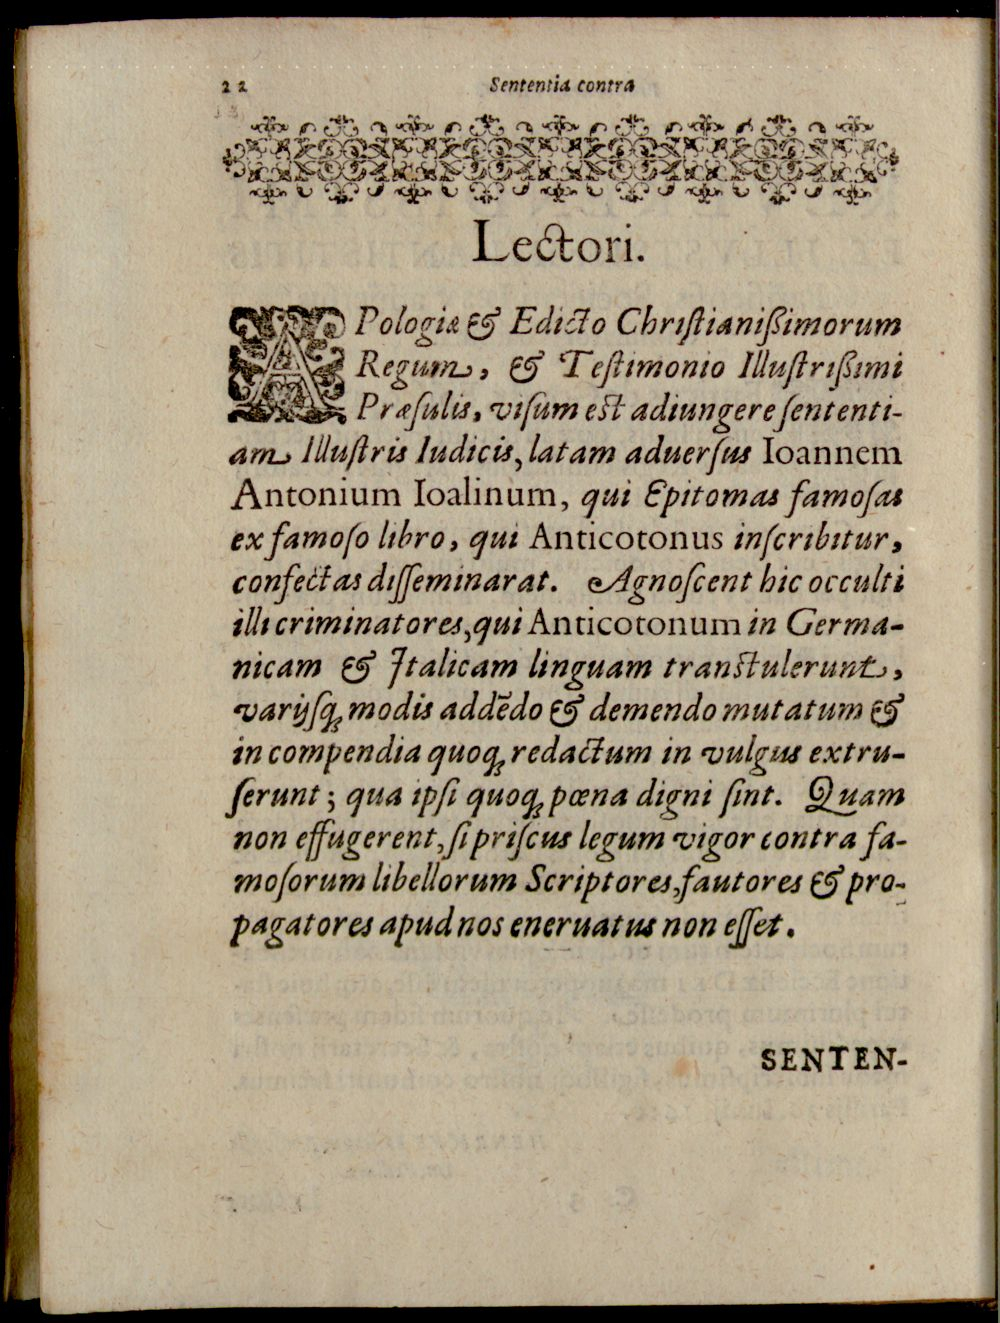 22 Sententia contra
Lectori.
APologiæ & Edicto Christianißimorum
Regum, & Testimonio Illustrißimi
Præsulis, visum est adiungere sententi-
am Illustris Iudicis, latam aduersus Ioannem
Antonium Ioalinum, qui Epitomas famosas
ex famoso libro, qui Anticotonus inscribitur,
confectas disseminarat. Agnoscent hic occulti
illi criminatores, qui Anticotonum in Germa-
nicam & Italicam linguam transtulerunt,
varijsq; modis addẽdo & demendo mutatum &
in compendia quoq; redactum in vulgus extru-
serunt; qua ipsi quoq; pœna digni sint. Quam
non effugerent, si priscus legum vigor contra fa-
mosorum libellorum Scriptores, fautores & pro-
pagatores apud nos eneruatus non esset.
SENTEN-